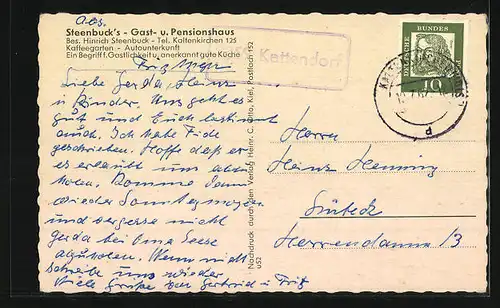 Abs.
Steenbuck's - Gast- u. Pensionshaus
Bes. Hinrich Steenbuck - Tel. Kaltenkirchen 125
Kaffeegarten - Autounterkunft
Ein Begriff f. Gastlichkeit u. anerkannt gute Küche
Fritz
Kattendorf
DEUTSCHE BUNDESPOST
10
Liebe Gerda, Heinz
u Kinder. Uns geht es
gut und Euch
auch. Ich habe
geschrieben. Hoffe daß er
es erlaubt uns
holen. Komme dann
wieder Sonntag
und vergesse nicht
Gerda bei Oma Leese
abzuholen. Wenn nicht
schreibe uns wieder
Viele Grüße von Gertrud u Fritz
Nachdruck durch den Verlag Heinr. C. Otto, Kiel, Postfach 152
u52
Herrn
Heinz Henning
Lübeck
Herrendamm 13